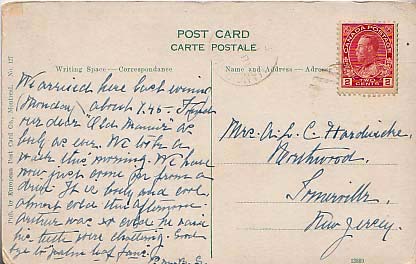 POST CARD
CARTE POSTALE
Writing Space — Correspondance
Name and Address — Adresse
CANADA POSTAGE
2 TWO CENTS 2
Pub. by European Post Card Co., Montreal. No. 127
We arrived here last evening
(Monday) about 7.45 — Found
our dear "Old Manor" as
lovely as ever. We took a
walk this morning. We have
now just come in from a
drive. It is lovely and cool,
almost cold this afternoon.
Arthur was so cold he said
his teeth were chattering. Good
bye to palm leaf fans.
Mrs. A. L. C. Hardwicke,
Brentwood,
Somerville,
New Jersey.